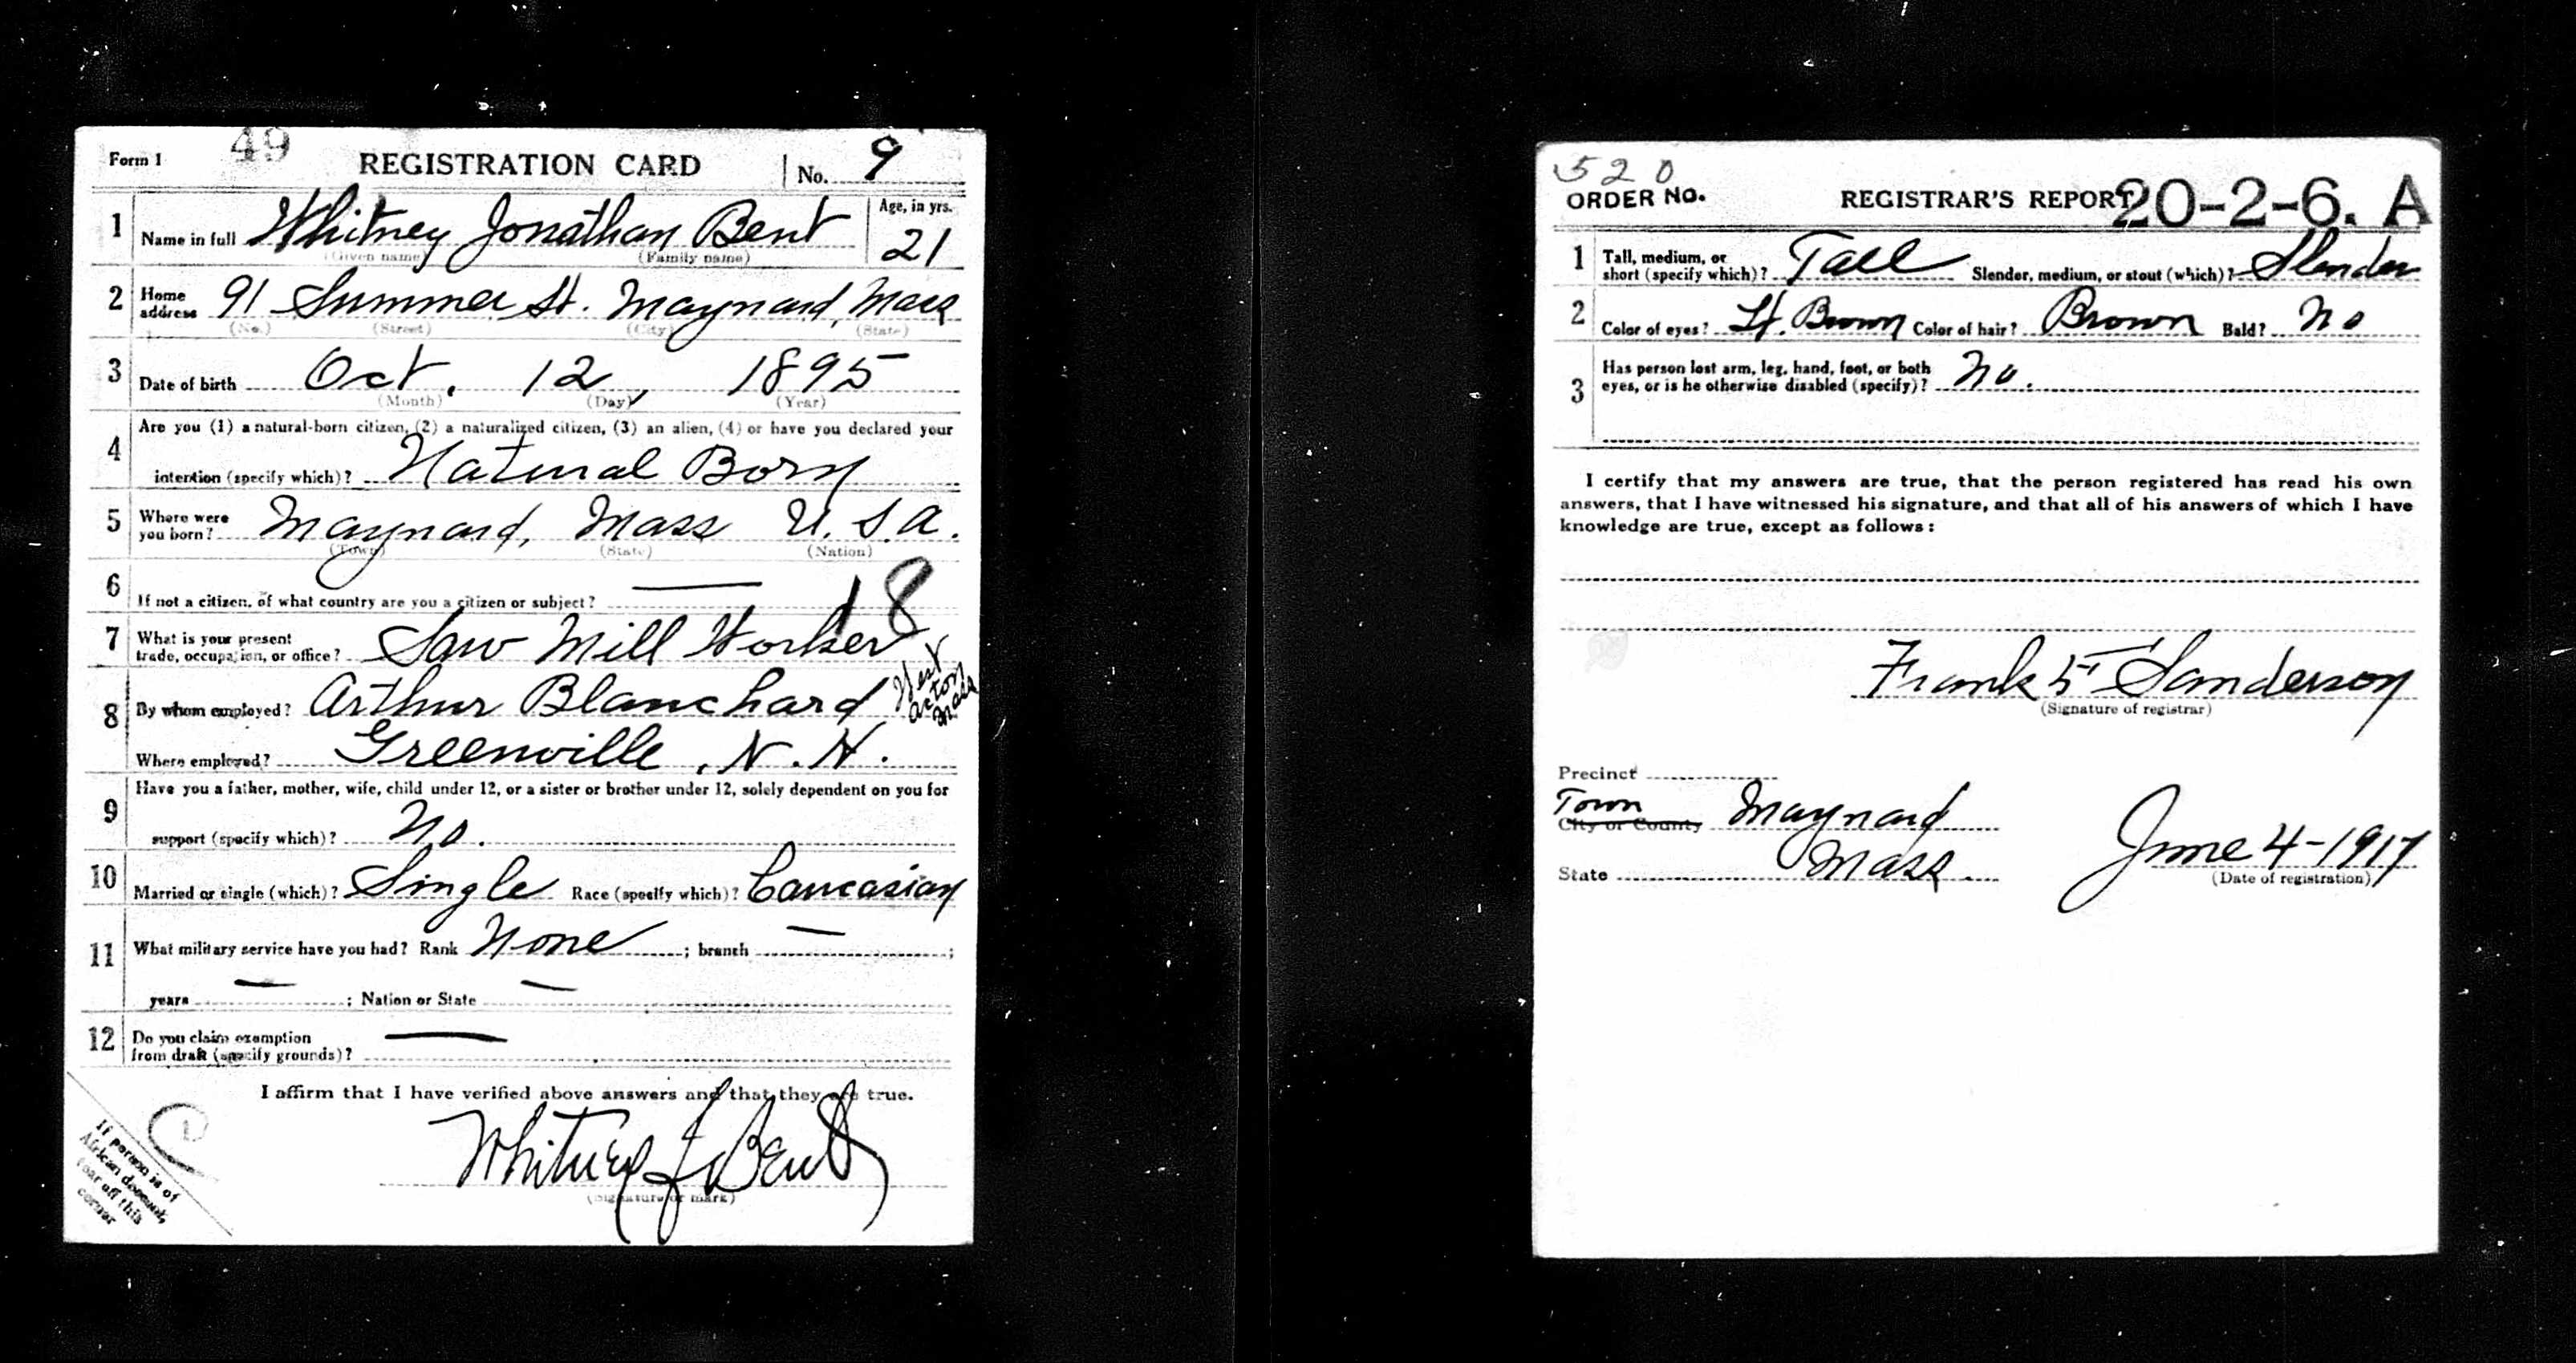 49
Form 1 REGISTRATION CARD No. 9
1 Name in full Whitney Jonathan Bent Age, in yrs. 21
(Given name) (Family name)
2 Home address 91 Summer St. Maynard, Mass
(No.) (Street) (City) (State)
3 Date of birth Oct. 12, 1895
(Month) (Day) (Year)
4 Are you (1) a natural-born citizen, (2) a naturalized citizen, (3) an alien, (4) or have you declared your
intention (specify which)? Natural Born
5 Where were you born? Maynard, Mass U.S.A.
(Town) (State) (Nation)
6 If not a citizen, of what country are you a citizen or subject? —
18
7 What is your present trade, occupation, or office? Saw Mill Worker
8 By whom employed? Arthur Blanchard West Acton Mass
Where employed? Greenville, N.H.
9 Have you a father, mother, wife, child under 12, or a sister or brother under 12, solely dependent on you for
support (specify which)? No.
10 Married or single (which)? Single Race (specify which)? Caucasian
11 What military service have you had? Rank None ; branch — ;
years — ; Nation or State —
12 Do you claim exemption from draft (specify grounds)? —
I affirm that I have verified above answers and that they are true.
Whitney J Bent
(Signature or mark)
If person is of
African descent,
tear off this
corner
520
ORDER NO. REGISTRAR'S REPORT 20-2-6. A
1 Tall, medium, or short (specify which)? Tall Slender, medium, or stout (which)? Slender
2 Color of eyes? Lt. Brown Color of hair? Brown Bald? No
3 Has person lost arm, leg, hand, foot, or both
eyes, or is he otherwise disabled (specify)? No.
I certify that my answers are true, that the person registered has read his own
answers, that I have witnessed his signature, and that all of his answers of which I have
knowledge are true, except as follows:
Frank Sanderson
(Signature of registrar)
Precinct
Town
City or County Maynard
State Mass.
June 4-1917
(Date of registration)